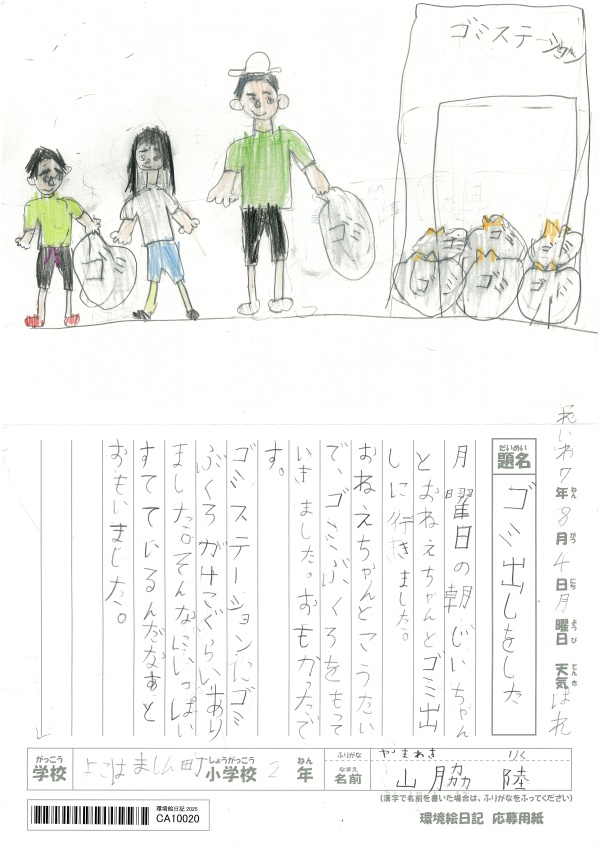 ゴミステーション
ゴミ
ゴミ
ゴミ
ゴミ
ゴミ
れいわ7年8月4日月曜日 天気はれ
ねん がつ にち ようび てんき
だいめい
題名 ゴミ出しをした
月曜日の朝じいちゃん
とおねえちゃんとゴミ出
しに行きました。
おねえちゃんとこうたい
で、ゴミぶくろをもって
いきました。おもかったで
す。
ゴミステーションにゴミ
ぶくろがけこぐらいあり
ました。そんなにいっぱい
すてているんだなぁと
おもいました。
がっこう しょうがっこう ねん
学校 よこはましん町 小学校 2年
ふりがな やまわき りく
なまえ
名前 山脇 陸
(漢字で名前を書いた場合は、ふりがなをふってください)
環境絵日記 2025
CA10020
環境絵日記 応募用紙